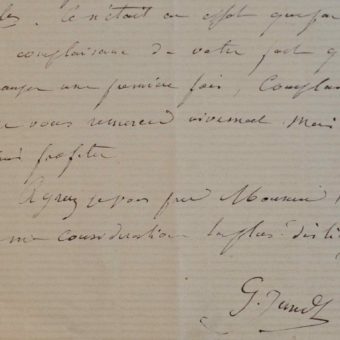 les. Ce n'était en effet que par
complaisance de votre part q
une première fois, Complai
vous remercie vivement, mais
profiter.
Agréez je vous prie Monsieur
ma considération la plus disti
G. Jundt